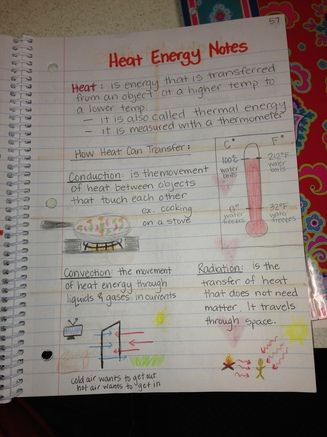 57
Heat Energy Notes
Heat: is energy that is transferred
from an object at a higher temp to
a lower temp.
- it is also called thermal energy
- it is measured with a thermometer
How Heat Can Transfer:
Conduction: is the movement
of heat between objects
that touch each other
ex. cooking
on a stove
C° F°
100°C water boils
212°F water boils
0° water freezes
32°F water freezes
Convection: the movement
of heat energy through
liquids & gases in currents
Radiation: is the
transfer of heat
that does not need
matter. It travels
through space.
cold air wants to get out
hot air wants to get in